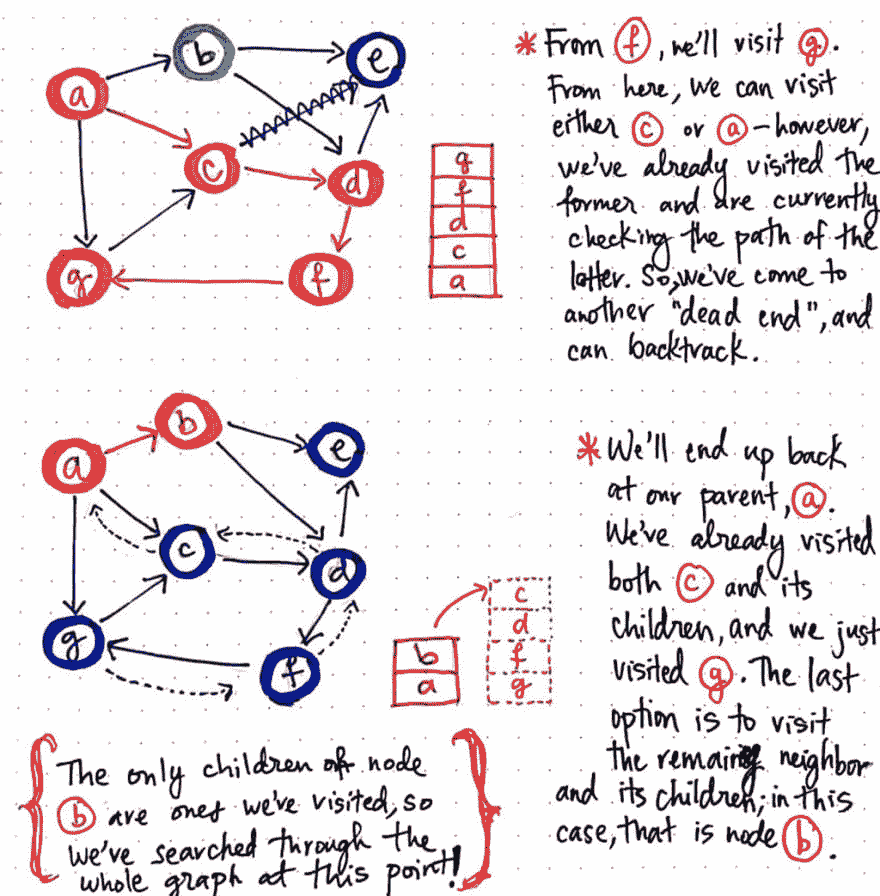 b
e
a
c
d
g
f
g
f
d
c
a
* From f, we'll visit g.
From here, we can visit
either c or a – however,
we've already visited the
former and are currently
checking the path of the
latter. So, we've come to
another "dead end", and
can backtrack.
b
e
a
c
d
g
f
b
a
c
d
f
g
* We'll end up back
at our parent, a.
We've already visited
both c and its
children, and we just
visited g. The last
option is to visit
the remaing neighbor
and its children; in this
case, that is node b.
The only children of node
b are ones we've visited, so
we've searched through the
whole graph at this point!